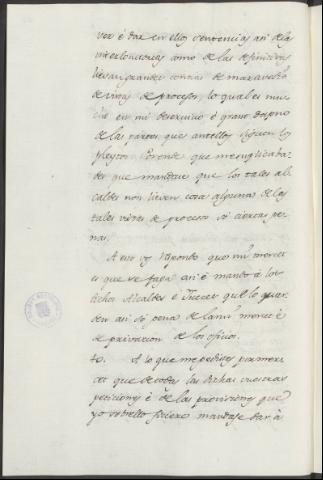 ver é dar en ellos sentencias asi de las
interlocutorias como de las definitivas
llevan grandes contias de maravedis
de vistas de procesos, lo qual es mu-
cho en mi deservicio é grant dapno
de las partes que antellos siguen los
pleytos. Porende que me suplicaba-
des que mandase que los tales al-
caldes non lleven cosa alguna de las
tales vistas de procesos só ciertas pe-
nas.
A esto vos respondo que mi merced
es que se faga asi é mando á los
dichos Alcaldes é Jueces que lo guar-
den asi só pena de la mi merced é
de privacion de los oficios.
40. A lo que me pedistes por mer-
cet que de todas las dichas vuestras
peticiones é de las provisiones que
yo sobrello ficiere mandase dar á